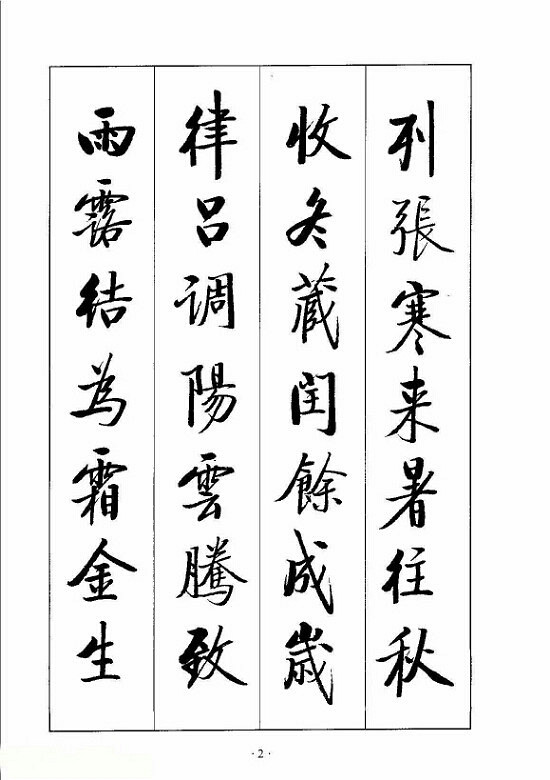 列張寒来暑往秋
收冬蔵閏餘成歳
律吕调陽雲騰致
雨露結為霜金生
·2·